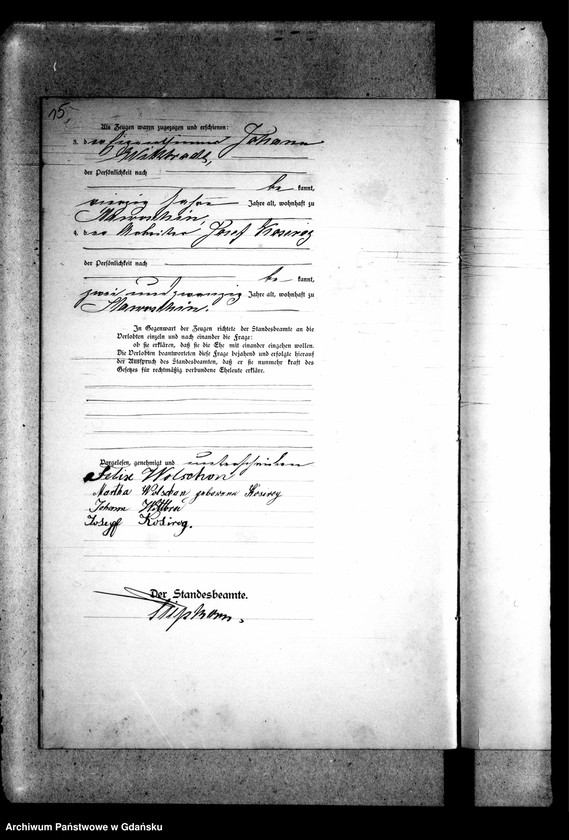 15,
Als Zeugen waren zugezogen und erschienen:
3. der Johann
der Persönlichkeit nach
be kannt,
vierzig Jahre Jahre alt, wohnhaft zu
4. der Arbeiter Josef Kosireg
der Persönlichkeit nach
be kannt,
zwei und zwanzig Jahre alt, wohnhaft zu
In Gegenwart der Zeugen richtete der Standesbeamte an die
Verlobten einzeln und nach einander die Frage:
ob sie erklären, daß sie die Ehe mit einander eingehen wollen.
Die Verlobten beantworteten diese Frage bejahend und erfolgte hierauf
der Ausspruch des Standesbeamten, daß er sie nunmehr kraft des
Gesetzes für rechtmäßig verbundene Eheleute erkläre.
Vorgelesen, genehmigt und unterschrieben
Felix Wolschon
Martha Wolschon geborene
Johann
Josepf Kosireg.
Der Standesbeamte.
Archiwum Państwowe w Gdańsku